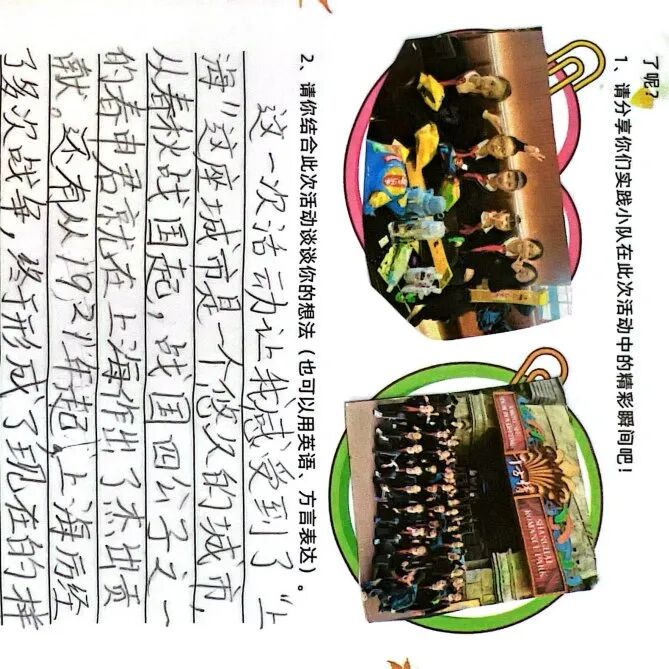 了呢？
1、请分享你们实践小队在此次活动中的精彩瞬间吧！
SHANGHAI
ROMANCE PARK
2、请你结合此次活动谈谈你的想法（也可以用英语、方言表达）。
这一次活动让我感受到了“上
海”这座城市是一个悠久的城市，
从春秋战国起，战国四公子之一
的春申君就在上海作出了杰出贡
献。还有从1921年起，上海历经
了多次战争，终于形成了现在的样